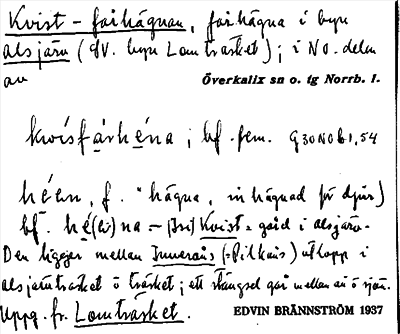 Kvist-fårhägnan, fårhägna i byn
Alsjärv (SV. byn Lomträsket); i NO. delen
av Överkalix sn o. tg Norrb. l.
kwísfa̱rhé̱na ; bf. fem. 930N0b1,54
héen, f. "hägna, inhägnad för djur)
bf. hé(w)na - Kvist = gård i Alsjärv.
Den ligger mellan Innerais (=Pilkais) utlopp i
Alsjärvträsket o träsket; ett stängsel går mellan ån o sjön.
Uppg. fr. Lomträsket. EDVIN BRÄNNSTRÖM 1937